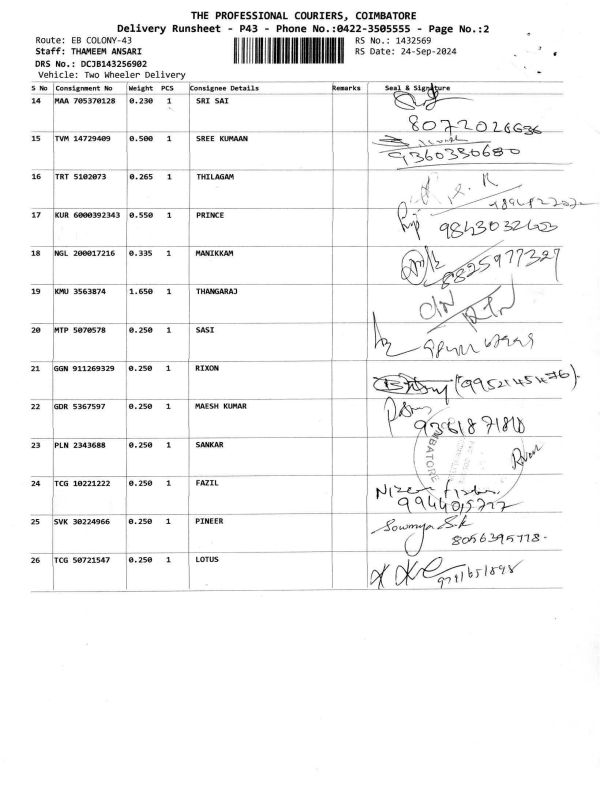 THE PROFESSIONAL COURIERS, COIMBATORE
Delivery Runsheet - P43 - Phone No.:0422-3505555 - Page No.:2
Route: EB COLONY-43 RS No.: 1432569
Staff: THAMEEM ANSARI RS Date: 24-Sep-2024
DRS No.: DCJB143256902
Vehicle: Two Wheeler Delivery
S No Consignment No Weight PCS Consignee Details Remarks Seal & Signature
14 MAA 705370128 0.230 1 SRI SAI
8072026636
15 TVM 14729409 0.500 1 SREE KUMAAN
9360380680
16 TRT 5102073 0.265 1 THILAGAM
17 KUR 6000392343 0.550 1 PRINCE
18 NGL 200017216 0.335 1 MANIKKAM
8825977327
19 KMU 3563874 1.650 1 THANGARAJ
20 MTP 5070578 0.250 1 SASI
21 GGN 911269329 0.250 1 RIXON
22 GDR 5367597 0.250 1 MAESH KUMAR
23 PLN 2343688 0.250 1 SANKAR
24 TCG 10221222 0.250 1 FAZIL
25 SVK 30224966 0.250 1 PINEER
Sowmya S.K
8056395778-
26 TCG 50721547 0.250 1 LOTUS